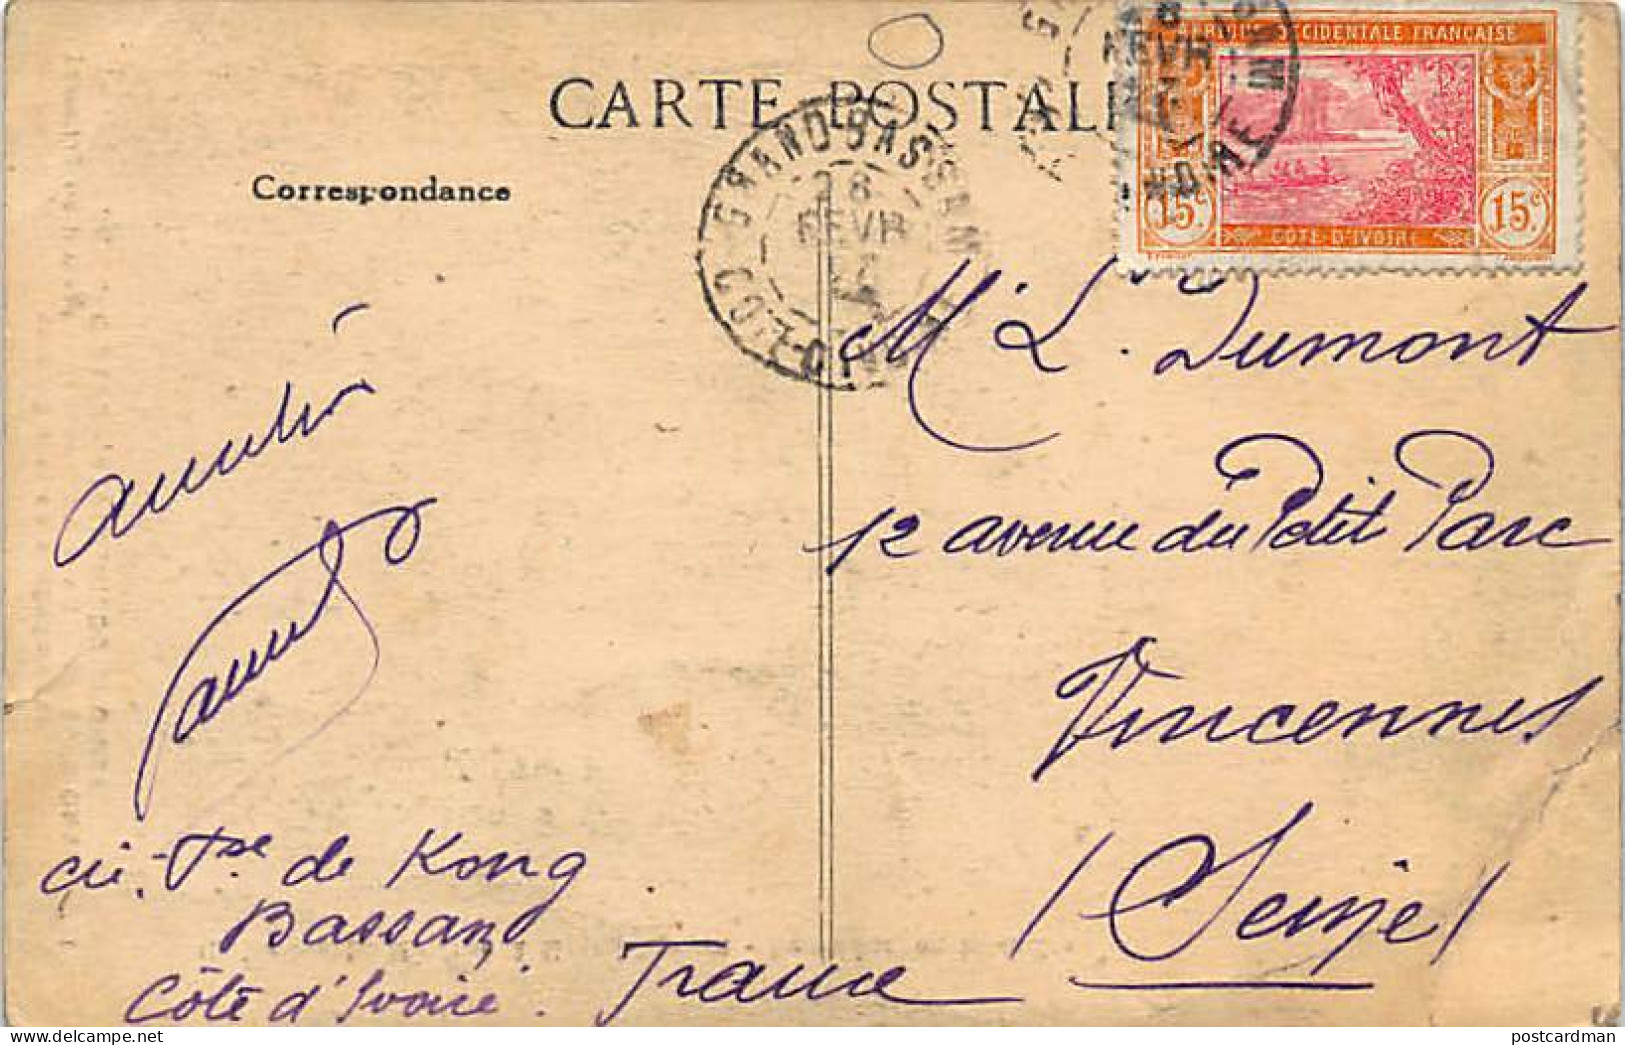 CARTE POSTALE
Correspondance
AFRIQUE OCCIDENTALE FRANÇAISE
15c 15c
CÔTE-D'IVOIRE
GRAND BASSAM
28
FEVR
CÔTE D'IVOIRE
Mr L. Dumont
12 avenue du Petit Parc
Vincennes
(Seine)
France
amitié
Cie Fse de Kong
Bassam
Côte d'Ivoire.
postcardman